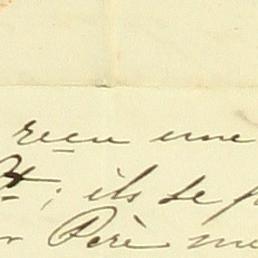 recu une
; ils se
Père me